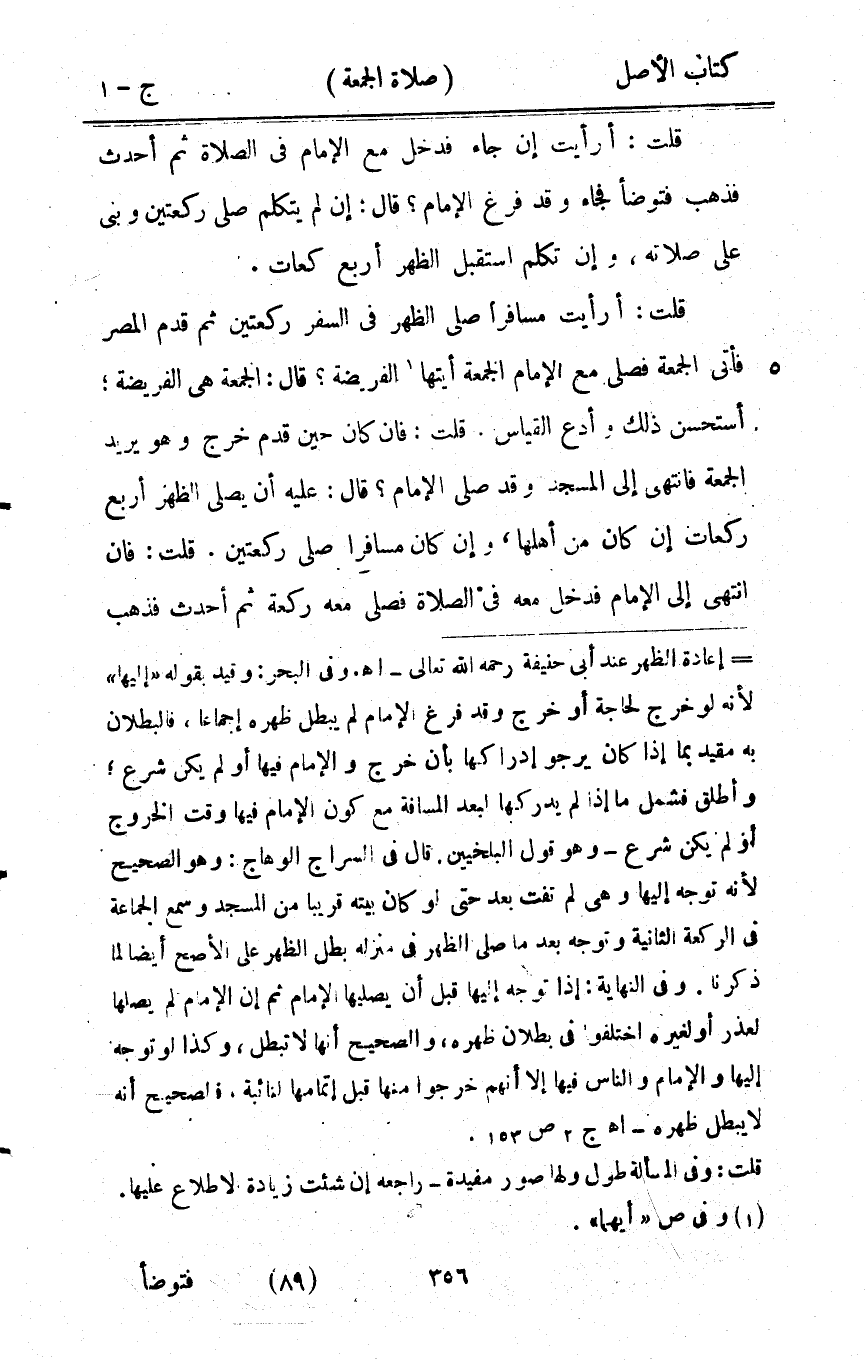 كتاب الأصل (صلاة الجمعة) ج - ١
قلت : أ رأيت إن جاء فدخل مع الإمام فى الصلاة ثم أحدث
فذهب فتوضأ فجاء و قد فرغ الإمام ؟ قال : إن لم يتكلم صلى ركعتين و بنى
على صلاته ، و إن تكلم استقبل الظهر أربع كعات .
قلت : أ رأيت مسافرا صلى الظهر فى السفر ركعتين ثم قدم المصر
فأتى الجمعة فصلى مع الإمام الجمعة أيتها ١ الفريضة ؟ قال : الجمعة هى الفريضة ؛ ٥
أستحسن ذلك و أدع القياس . قلت : فان كان حين قدم خرج و هو يريد
الجمعة فانتهى إلى المسجد و قد صلى الإمام ؟ قال : عليه أن يصلى الظهر أربع
ركعات إن كان من أهلها ، و إن كان مسافرا صلى ركعتين . قلت : فان
انتهى إلى الإمام فدخل معه فى الصلاة فصلى معه ركعة ثم أحدث فذهب
= إعادة الظهر عند أبى حنيفة رحمه الله تعالى ـ اهـ. وفى البحر : و قيد بقوله «إليها»
لأنه لو خرج لحاجة أو خرج وقد فرغ الإمام لم يبطل ظهره إجماعا ، فالبطلان
به مقيد بما إذا كان يرجو إدراكها بأن خرج و الإمام فيها أو لم يكن شرع ؛
و أطلق فشمل ما إذا لم يدركها لبعد المسافة مع كون الإمام فيها وقت الخروج
أو لم يكن شرع ـ وهو قول البلخيين. قال فى السراج الوهاج : وهو الصحيح
لأنه توجه إليها و هى لم تفت بعد حتى لو كان بيته قريبا من المسجد و سمع الجماعة
فى الركعة الثانية و توجه بعد ما صلى الظهر فى منزله بطل الظهر على الأصح أيضا لما
ذكرنا . وفى النهاية : إذا توجه إليها قبل أن يصليها الإمام ثم إن الإمام لم يصلها
لعذر أو لغيره اختلفوا فى بطلان ظهره، و الصحيح أنها لا تبطل ، وكذا لو توجه
إليها و الإمام و الناس فيها إلا أنهم خرجوا منها قبل إتمامها لنائبة ، فالصحيح أنه
لا يبطل ظهره ـ اهـ ج ٢ ص ١٥٣ .
قلت : وفى المسألة طول ولها صور مفيدة ـ راجعه إن شئت زيادة لاطلاع عليها.
(١) و فى ص « أيهما» .
٣٥٦ (٨٩) فتوضأ